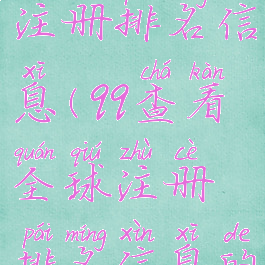 注册排名信
xī chá kàn
息(99查看
quán qiú zhù cè
全球注册
pái míng xìn xī de
排名信息的